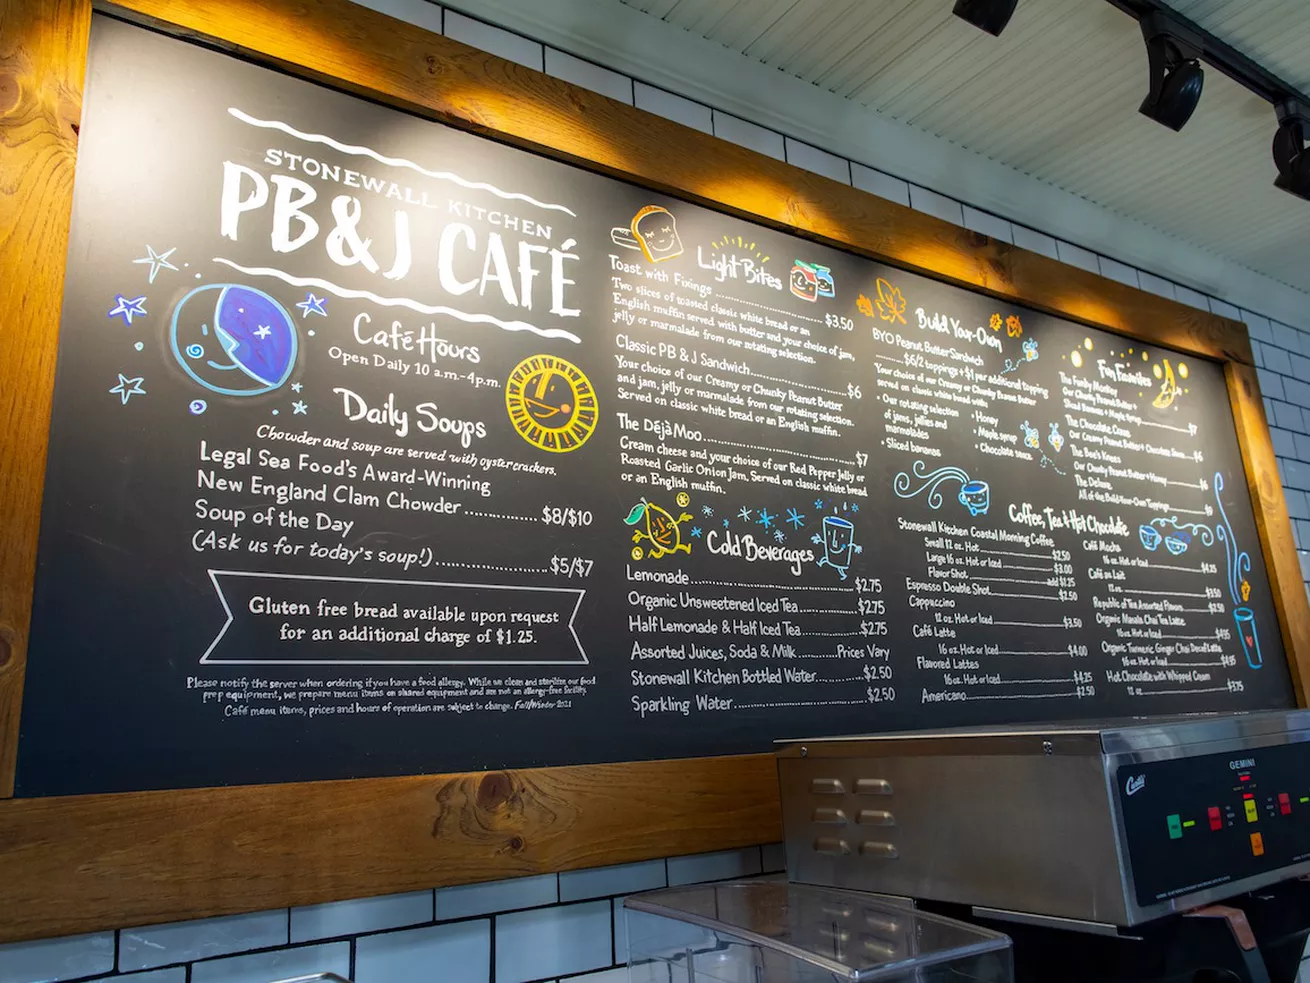 STONEWALL KITCHEN
PB&J CAFÉ
Café Hours
Open Daily 10 a.m.-4p.m.
Daily Soups
Chowder and soup are served with oyster crackers.
Legal Sea Food's Award-Winning
New England Clam Chowder ............. $8/$10
Soup of the Day
(Ask us for today's soup!) ............. $5/$7
Gluten free bread available upon request
for an additional charge of $1.25.
Please notify the server when ordering if you have a food allergy. While we clean and sterilize our food
prep equipment, we prepare menu items on shared equipment and are not an allergy-free facility.
Café menu items, prices and hours of operation are subject to change. Fall/Winter 2021
Light Bites
Toast with Fixings ............. $3.50
Two slices of toasted classic white bread or an
English muffin served with butter and your choice of jam,
jelly or marmalade from our rotating selection.
Classic PB & J Sandwich ............. $6
Your choice of our Creamy or Chunky Peanut Butter
and jam, jelly or marmalade from our rotating selection.
Served on classic white bread or an English muffin.
The Déjà Moo ............. $7
Cream cheese and your choice of our Red Pepper Jelly or
Roasted Garlic Onion Jam, Served on classic white bread
or an English muffin.
Cold Beverages
Lemonade ............. $2.75
Organic Unsweetened Iced Tea ............. $2.75
Half Lemonade & Half Iced Tea ............. $2.75
Assorted Juices, Soda & Milk ............. Prices Vary
Stonewall Kitchen Bottled Water ............. $2.50
Sparkling Water ............. $2.50
Build Your-Own
BYO Peanut Butter Sandwich
............. $6/2 toppings + $1 per additional topping
Your choice of our Creamy or Chunky Peanut Butter
served on classic white bread with:
• Our rotating selection
of jams, jellies and
marmalades
• Sliced bananas
• Honey
• Maple syrup
• Chocolate sauce
Fun Favorites
The Funky Monkey
Our Chunky Peanut Butter +
Sliced Bananas + Maple Syrup ............. $7
The Chocolate Cravin
Our Creamy Peanut Butter + Chocolate Sauce ... $6
The Bee's Knees
Our Chunky Peanut Butter + Honey ............. $6
The Deluxe
All of the Build-Your-Own Toppings ............. $9
Coffee, Tea & Hot Chocolate
Stonewall Kitchen Coastal Morning Coffee
Small 12 oz. Hot ............. $2.50
Large 16 oz. Hot or Iced ............. $3.00
Flavor Shot ............. add $1.25
Espresso Double Shot ............. $2.50
Cappuccino
12 oz. Hot or Iced ............. $3.50
Café Latte
16 oz. Hot or Iced ............. $4.00
Flavored Lattes
16 oz. Hot or Iced ............. $4.25
Americano ............. $2.50
Café Mocha
16 oz. Hot or Iced ............. $4.25
Café au Lait
12 oz. ............. $3.50
Republic of Tea Assorted Flavors ............. $2.50
Organic Masala Chai Tea Latte
16 oz. Hot or Iced ............. $4.95
Organic Turmeric Ginger Chai Decaf Latte
16 oz. Hot or Iced ............. $4.95
Hot Chocolate with Whipped Cream
12 oz. ............. $3.75
Curtis
GEMINI